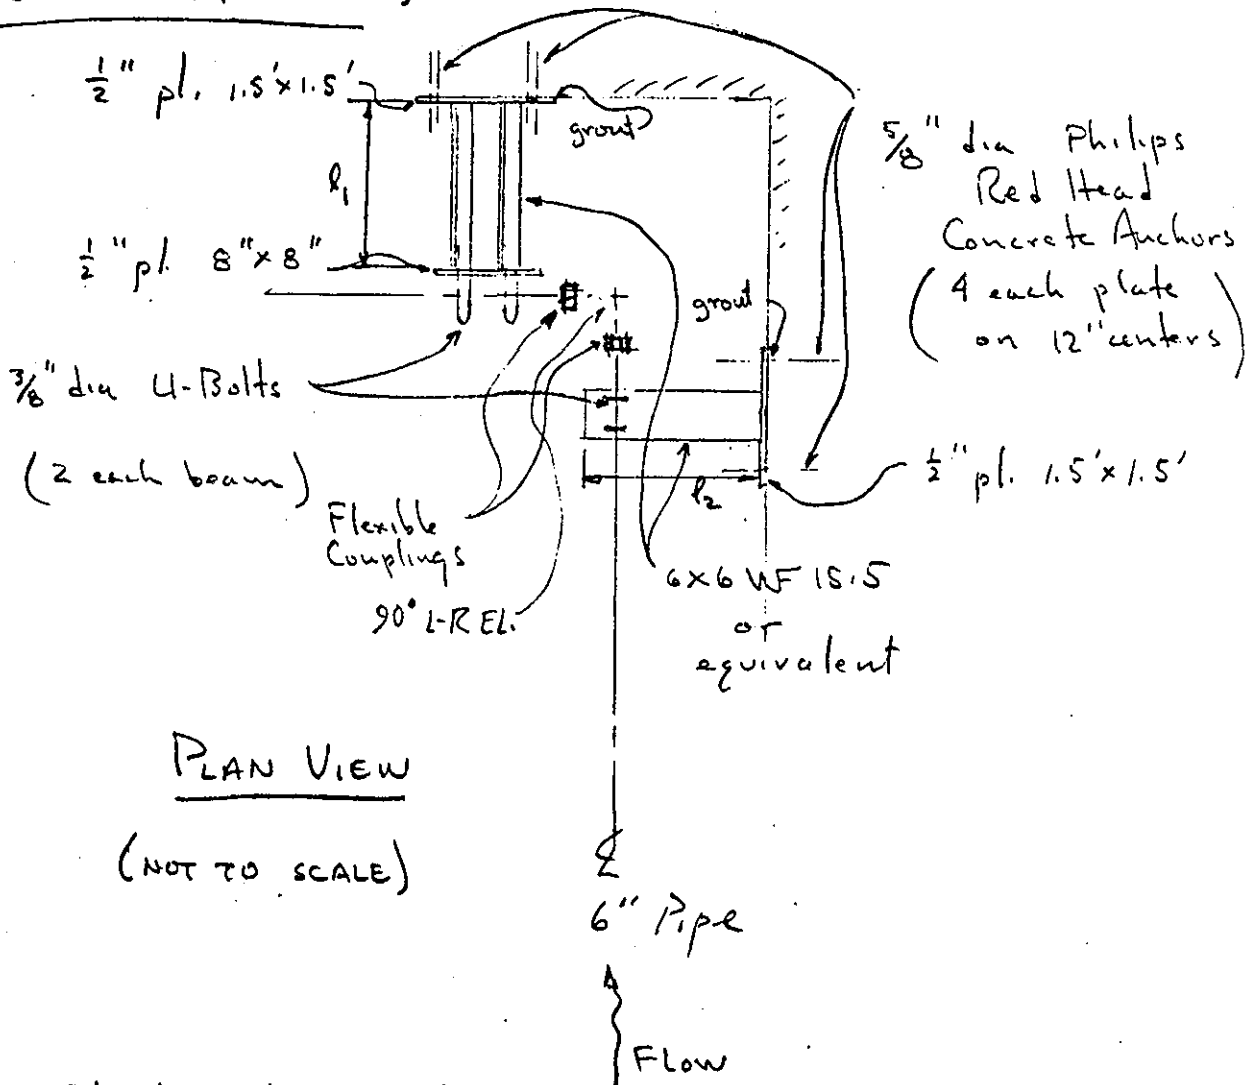 1/2" pl. 1.5'x1.5'
grout
l1
1/2" pl. 8"x8"
5/8" dia Philips
Red Head
Concrete Anchors
(4 each plate
on 12" centers)
grout
3/8" dia U-Bolts
(2 each beam)
l2
1/2" pl. 1.5'x1.5'
Flexible
Couplings
90° L-R EL.
6x6 WF 15.5
or
equivalent
PLAN VIEW
(NOT TO SCALE)
6" Pipe
FLOW